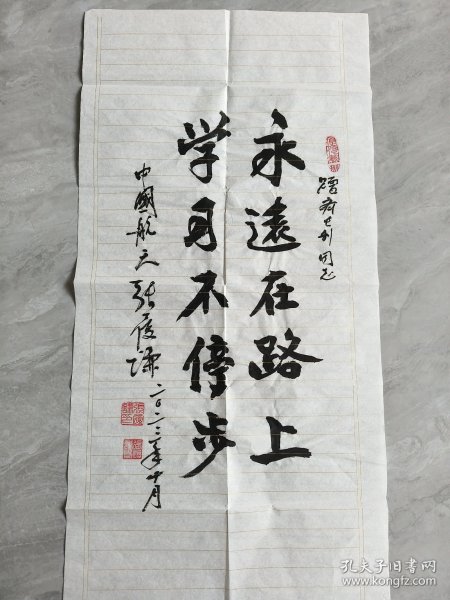 赠 同志
永遠在路上
学习不停步
中國航天 张履谦 年十月
孔夫子旧书网
www.kongfz.com